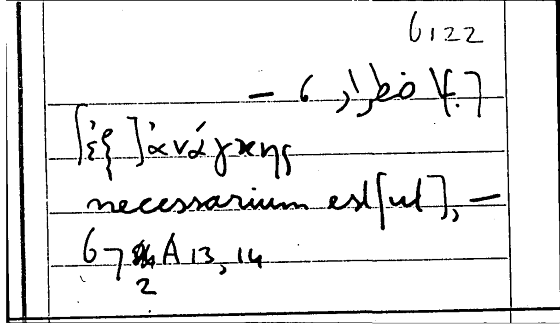 6122
[ἐξ] ἀνάγκης
necessarium est [ut], –
67 A 13, 14
2